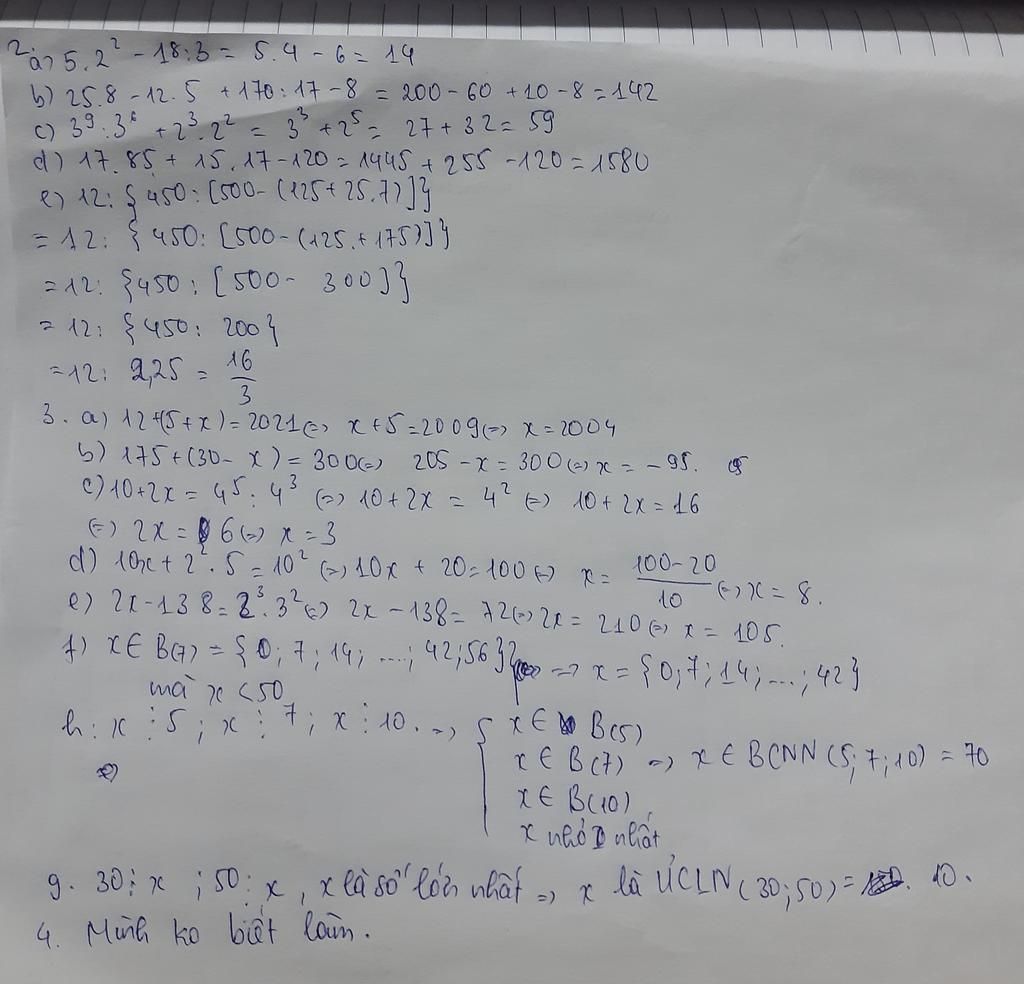 2. a) 5.2² - 18:3 = 5.4 - 6 = 14
b) 25.8 - 12.5 + 170:17 - 8 = 200 - 60 + 10 - 8 = 142
c) 3⁹:3⁶ + 2³.2² = 3³ + 2⁵ = 27 + 32 = 59
d) 17.85 + 15.17 - 120 = 1445 + 255 - 120 = 1580
e) 12: {450: [500 - (125 + 25.7)]}
= 12: {450: [500 - (125 + 175)]}
= 12: {450: [500 - 300]}
= 12: {450: 200}
= 12: 2,25 = 16/3
3. a) 12 + (5 + x) = 2021 (=) x + 5 = 2009 (=) x = 2004
b) 175 + (30 - x) = 300 (=) 205 - x = 300 (=) x = -95.
c) 10 + 2x = 4⁵: 4³ (=) 10 + 2x = 4² (=) 10 + 2x = 16
(=) 2x = 6 (=) x = 3
d) 10x + 2².5 = 10² (=) 10x + 20 = 100 (=) x = (100-20)/10 (=) x = 8.
e) 2x - 138 = 2³.3² (=) 2x - 138 = 72 (=) 2x = 210 (=) x = 105.
f) x ∈ B(7) = {0; 7; 14; ...; 42; 56} => x = {0; 7; 14; ...; 42}
mà x < 50
h: x ⋮ 5; x ⋮ 7; x ⋮ 10. => { x ∈ B(5)
x ∈ B(7) => x ∈ BCNN (5; 7; 10) = 70
x ∈ B(10)
x nhỏ nhất
g. 30 ⋮ x ; 50 ⋮ x, x là số lớn nhất => x là ƯCLN (30; 50) = 10.
4. Mình ko biết làm.